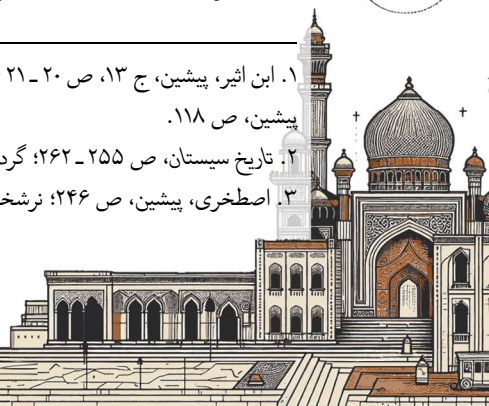 ۱. ابن اثیر، پیشین، ج ۱۳، ص ۲۰ ـ ۲۱
پیشین، ص ۱۱۸.
۲. تاریخ سیستان، ص ۲۵۵ ـ ۲۶۲؛ گرد
۳. اصطخری، پیشین، ص ۲۴۶؛ نرشخ